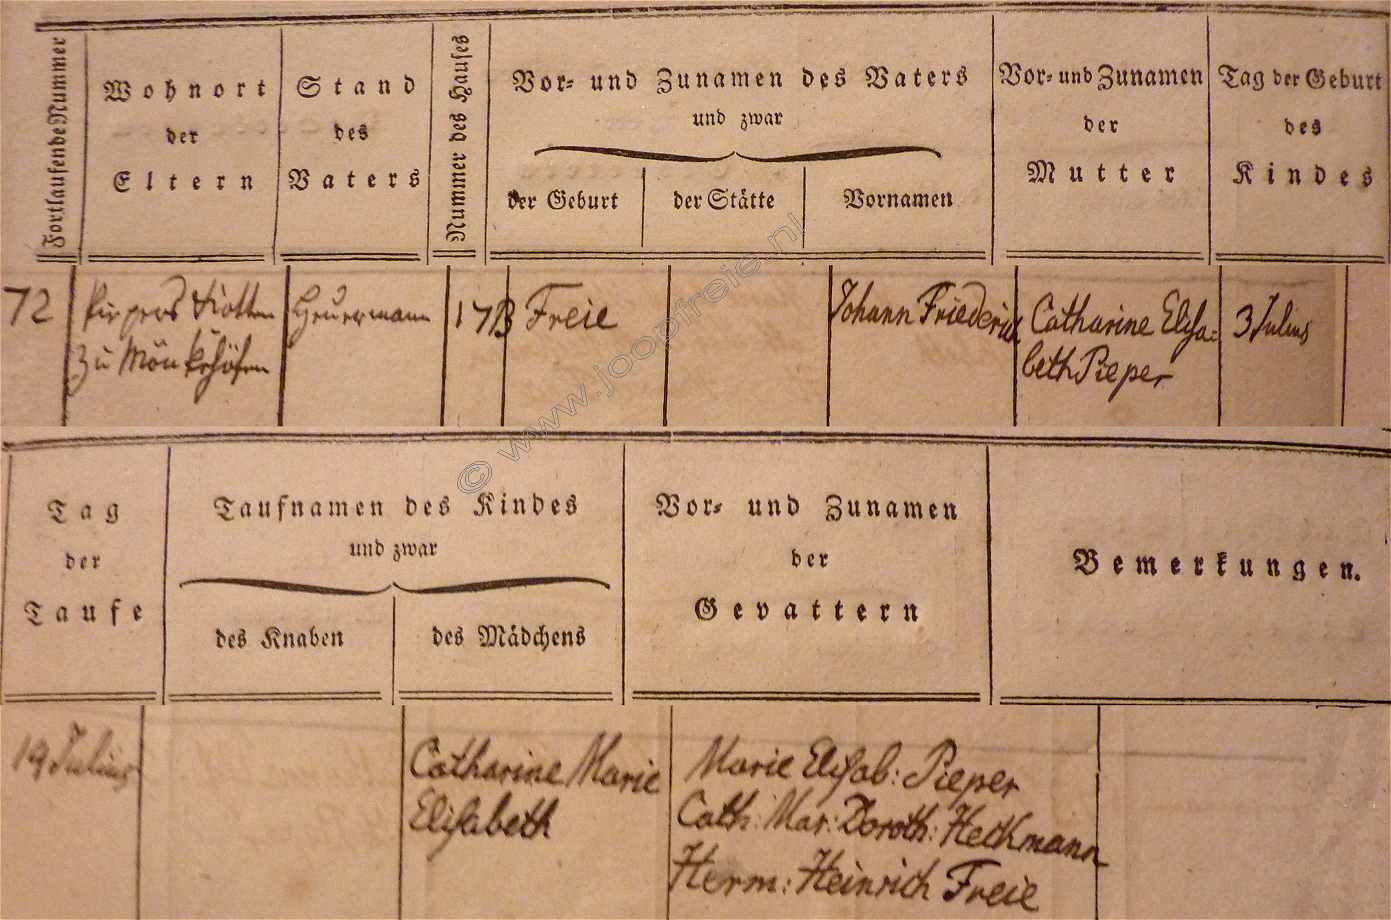 Fortlaufende Nummer
Wohnort
der
Eltern
Stand
des
Vaters
Nummer des Hauses
Vor- und Zunamen des Vaters
und zwar
der Geburt
der Stätte
Vornamen
Vor- und Zunamen
der
Mutter
Tag der Geburt
des
Kindes
72
Piepers Kotten
zu Mönkehöfen
Heuermann
17B
Freie
Johann Friederich
Catharine Elisa-
beth Pieper
3 Julius
© www.joopfreie.nl
Tag
der
Taufe
Taufnamen des Kindes
und zwar
des Knaben
des Mädchens
Vor- und Zunamen
der
Gevattern
Bemerkungen.
19 Julius
Catharine Marie
Elisabeth
Marie Elisab: Pieper
Cath: Mar: Doroth: Heckmann
Herm: Heinrich Freie